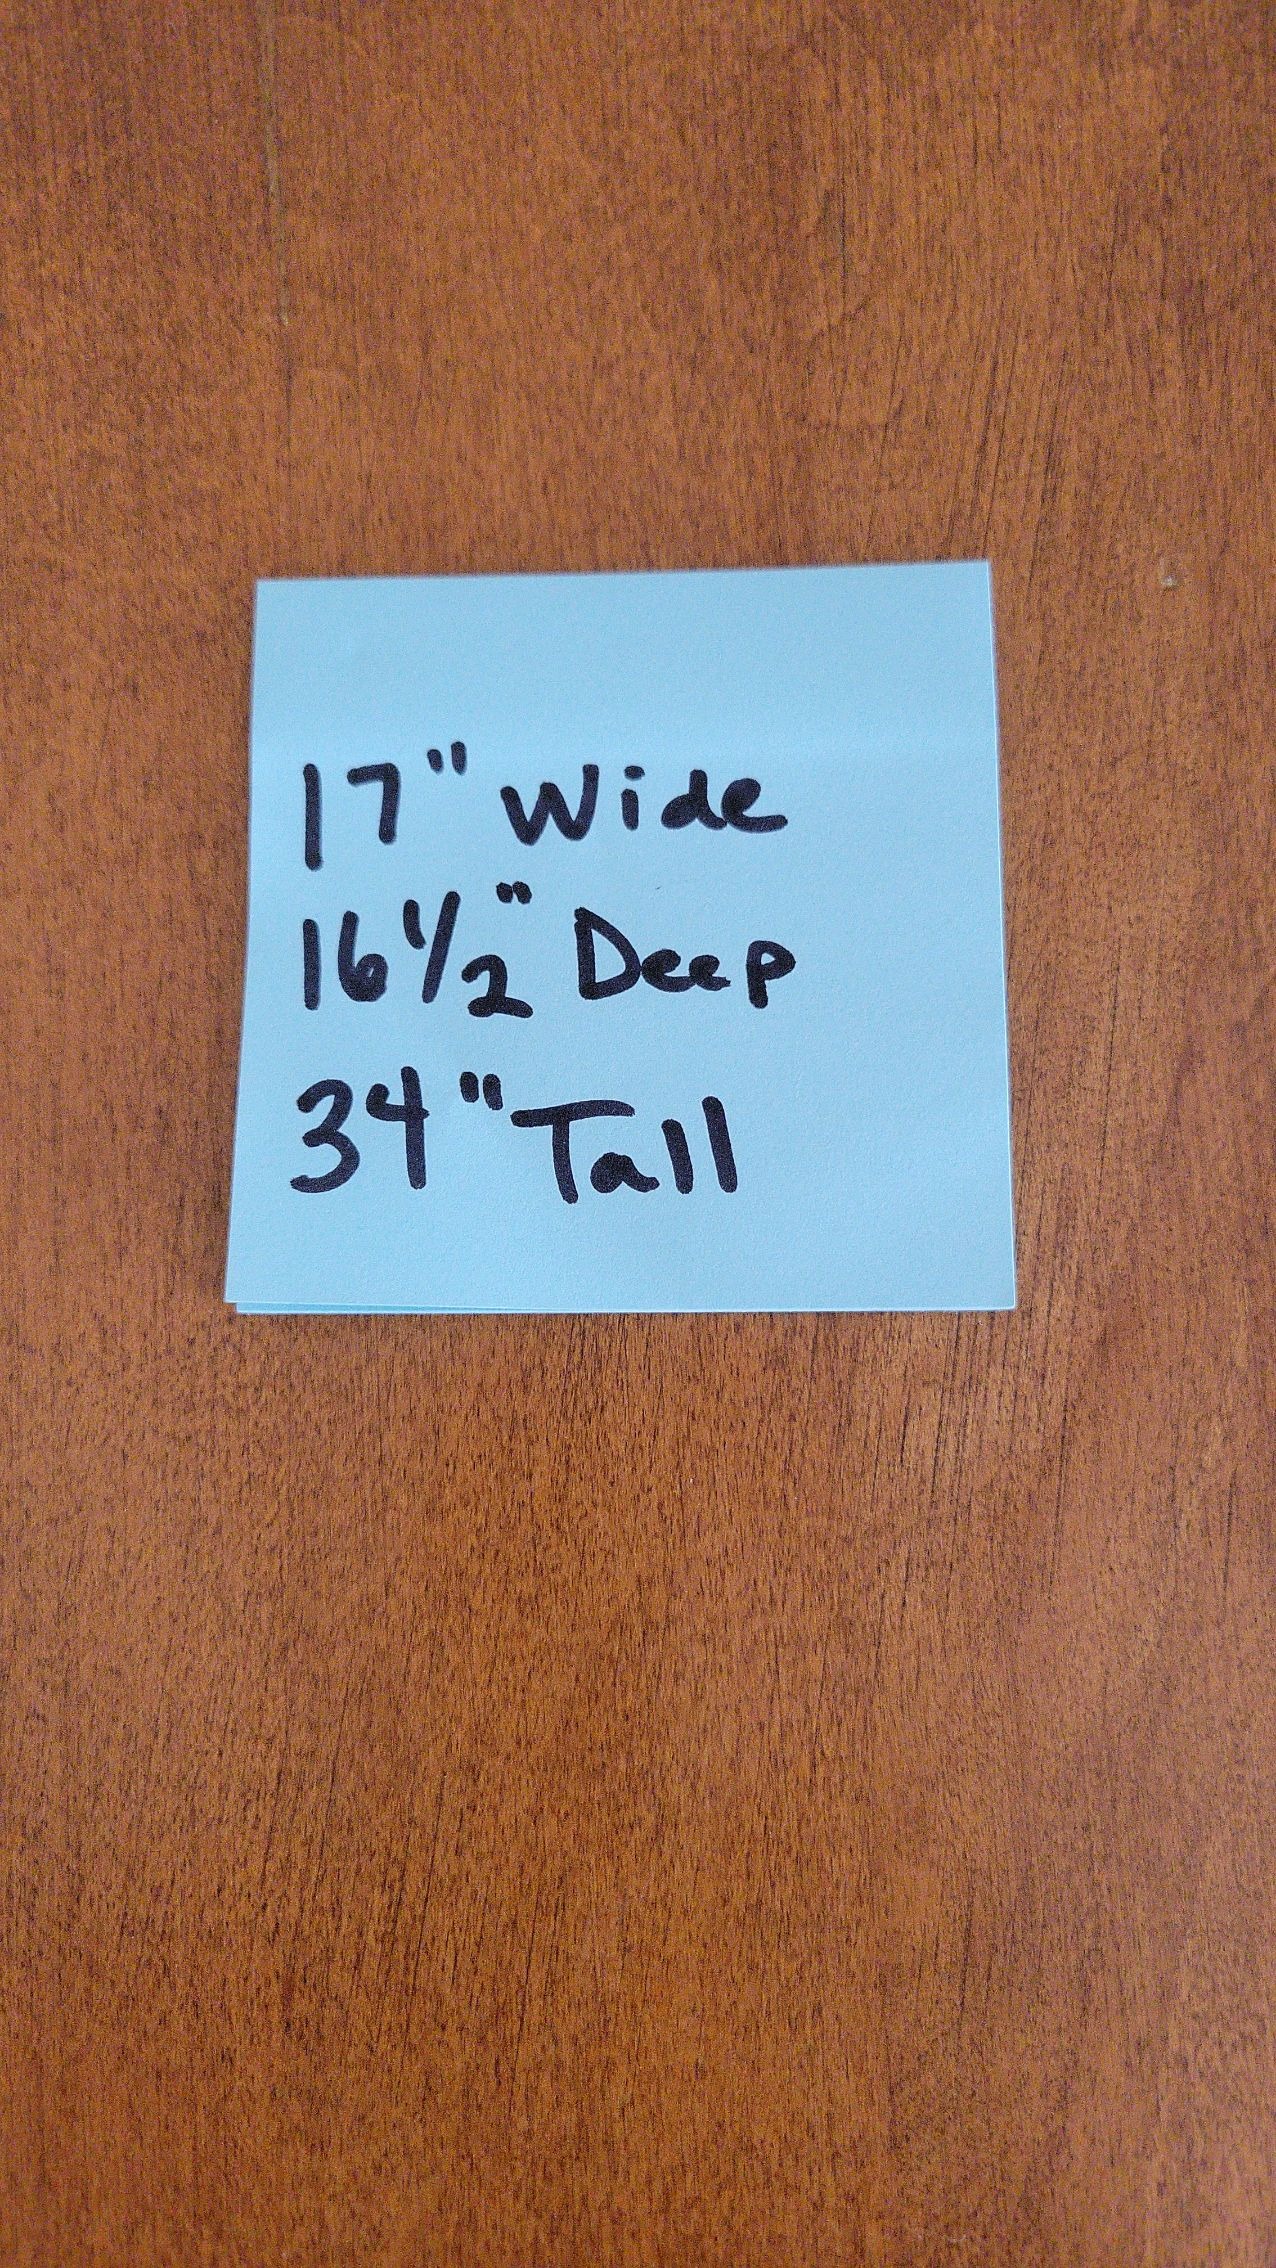 17" Wide
16 1/2" Deep
34" Tall